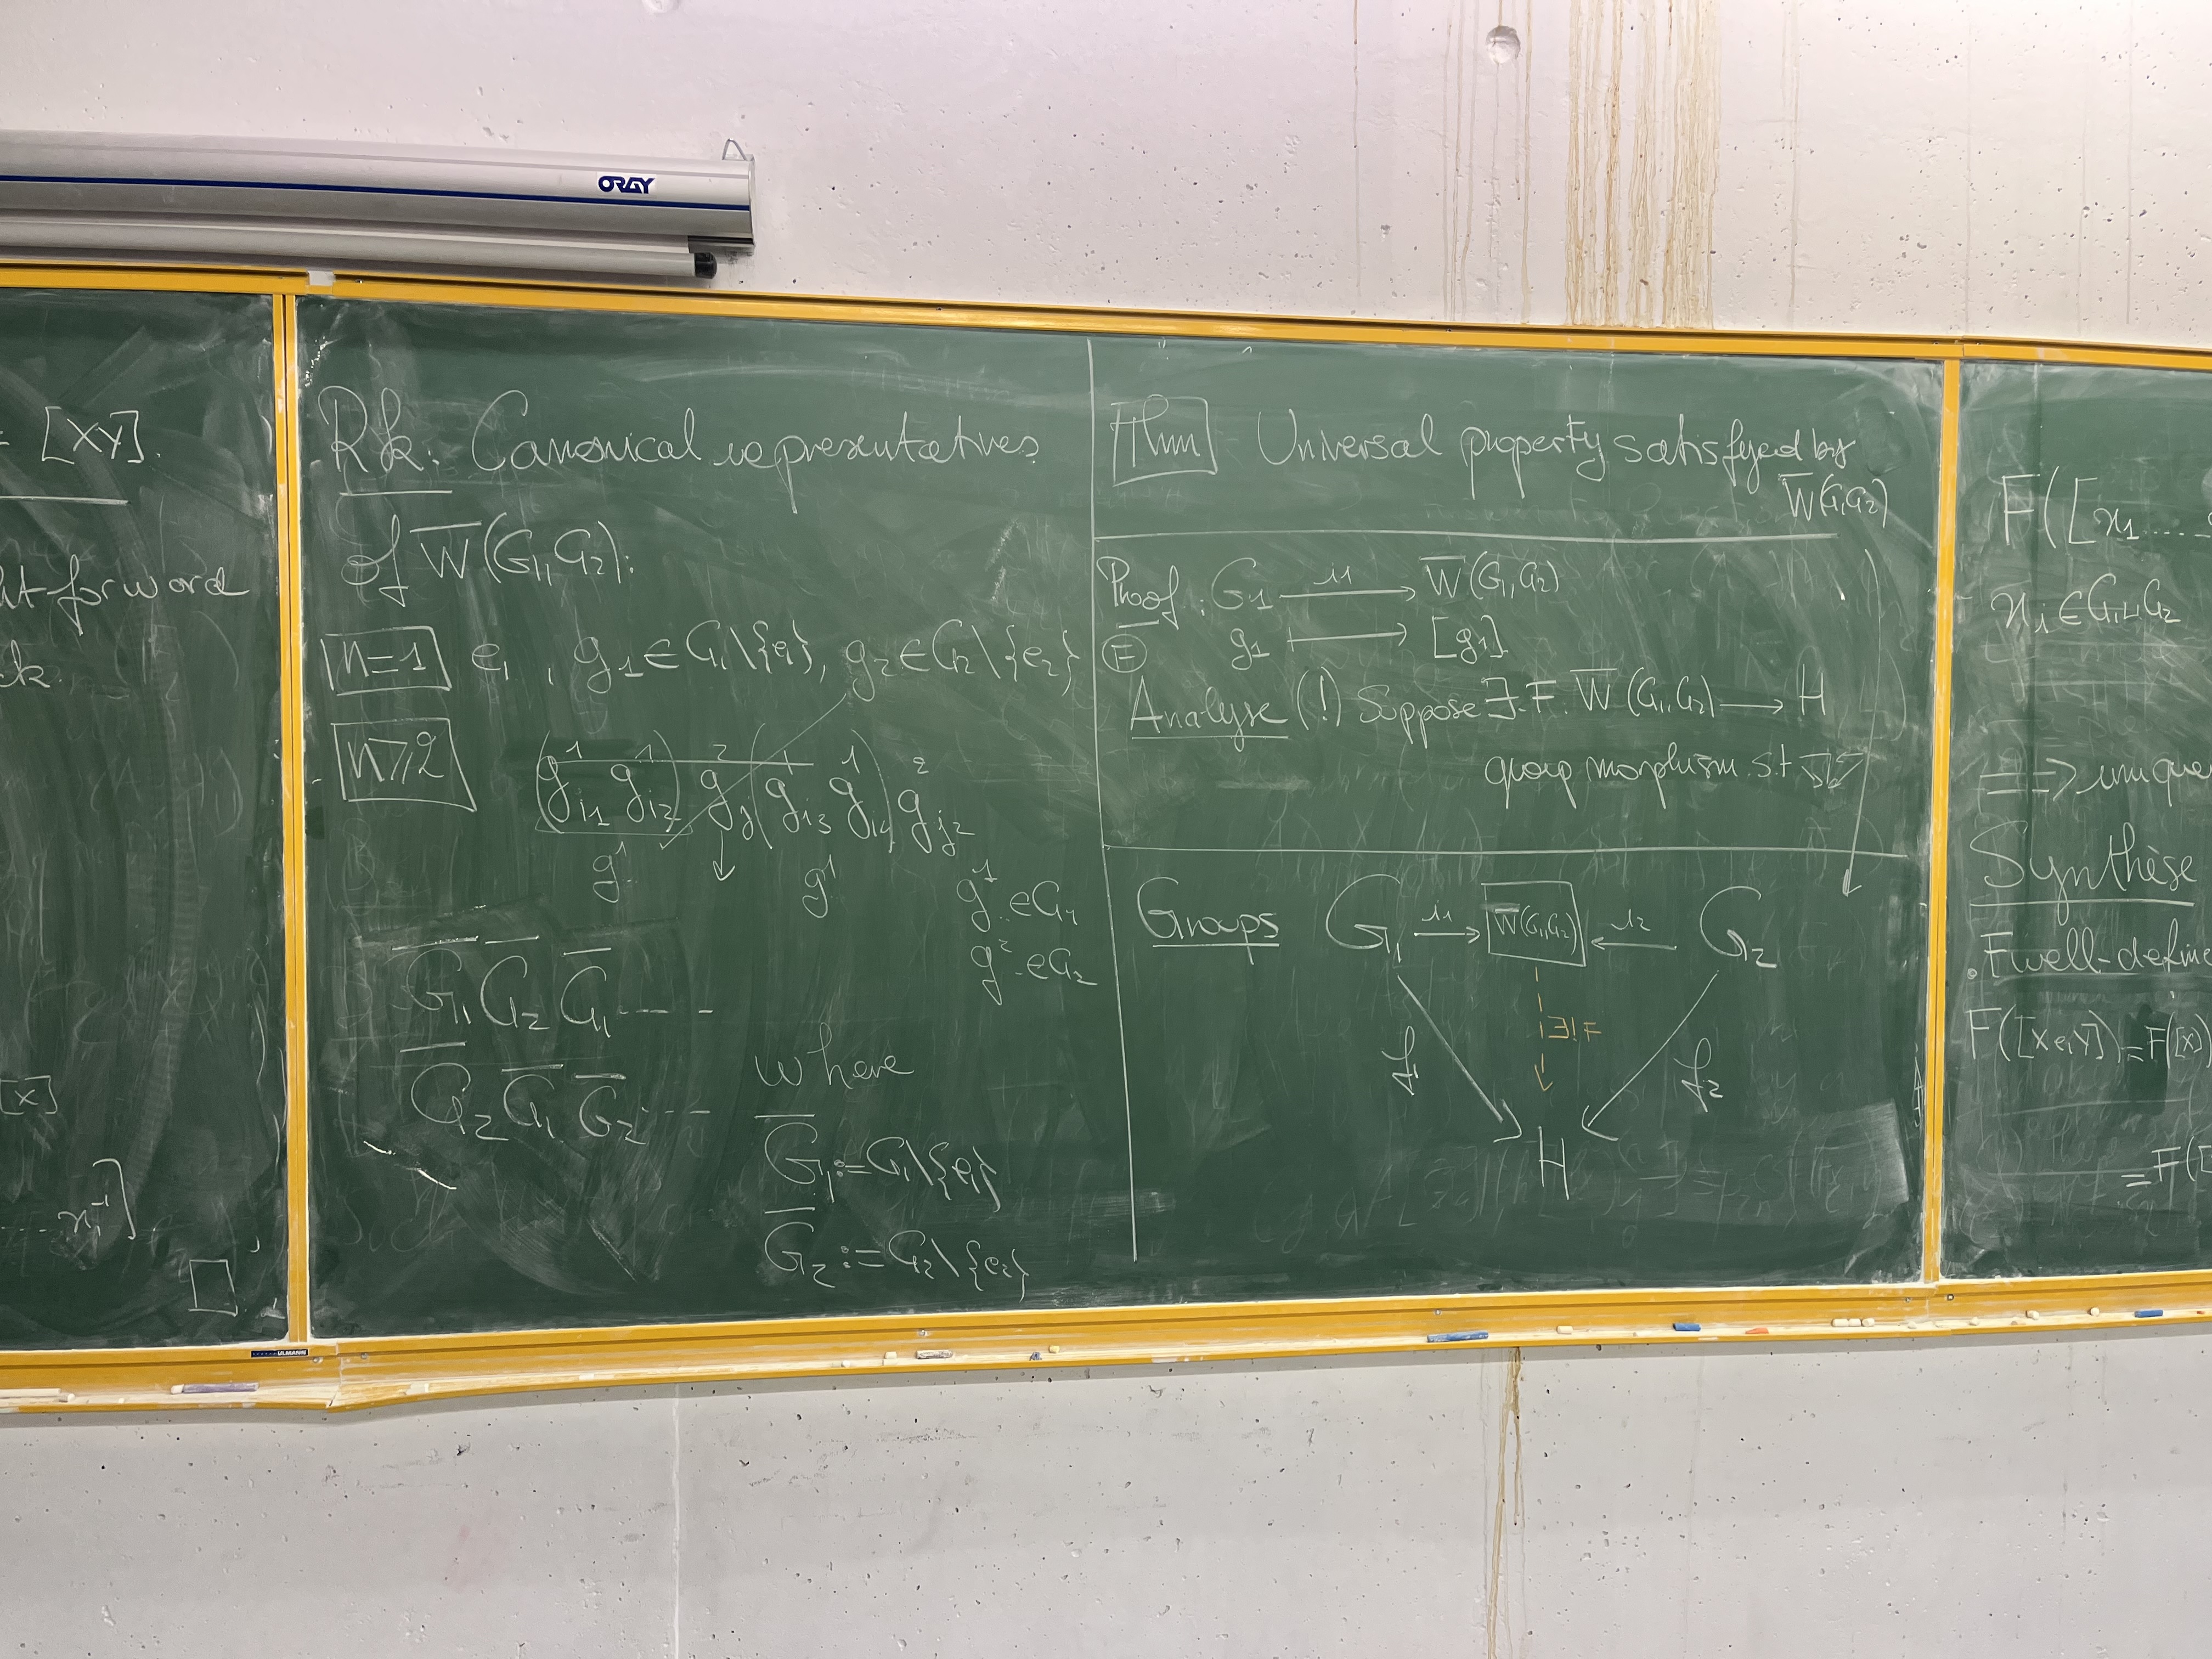 ORAY
= [XY].
k.
[x]
Rk: Canonical representatives
of W̅(G₁,G₂):
n=1 e₁, g₁∈G₁\{e₁}, g₂∈G₂\{e₂}
n⩾2 (g¹ᵢ₁ g¹ᵢ₂) g²ⱼ (g¹ᵢ₃ g¹ᵢ₄) g²ⱼ₂
g¹ g¹
g¹∈G₁
g²∈G₂
G̅₁ G̅₂ G̅₁ ----
G̅₂ G̅₁ G̅₂ ----
where
G̅₁ := G₁\{e₁}
G̅₂ := G₂\{e₂}
Thm Universal property satisfyed by
W̅(G₁,G₂)
Proof: G₁ ⟶ W̅(G₁,G₂)
i₁
E g₁ ⟼ [g₁]
Analyse (!) Suppose ∃ F: W̅(G₁,G₂) ⟶ H
group morphism s.t
Groups G₁ ⟶ W̅(G₁,G₂) ⟵ G₂
i₁ i₂
∃!F
f₁ f₂
H
F([x₁....
xᵢ∈G₁⊔G₂
Synthèse
F([Xe₁Y])=F([X]
=F([
ULMANN